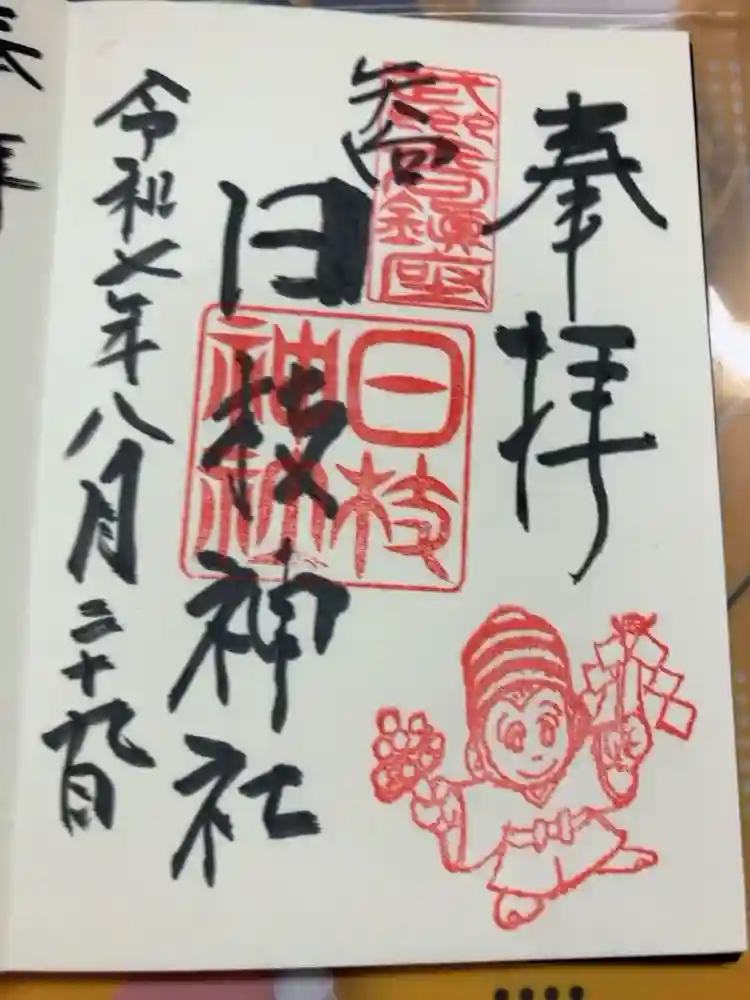 奉拝
鎮座
日枝神社
日枝神社
令和七年八月二十九日